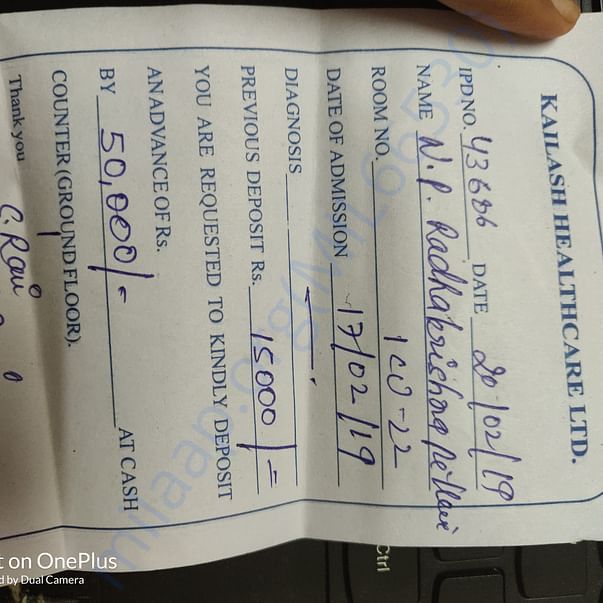 KAILASH HEALTHCARE LTD.
IPD NO. 43686 DATE 20/02/19
NAME N.P. Radhakrishna Pillai
ROOM NO. ICU-22
DATE OF ADMISSION 17/02/19
DIAGNOSIS
PREVIOUS DEPOSIT Rs. 15000/=
YOU ARE REQUESTED TO KINDLY DEPOSIT
AN ADVANCE OF Rs.
BY 50,000/= AT CASH
COUNTER (GROUND FLOOR).
Thank you
milaap.org(MIL665307
t on OnePlus
d by Dual Camera
Ctrl